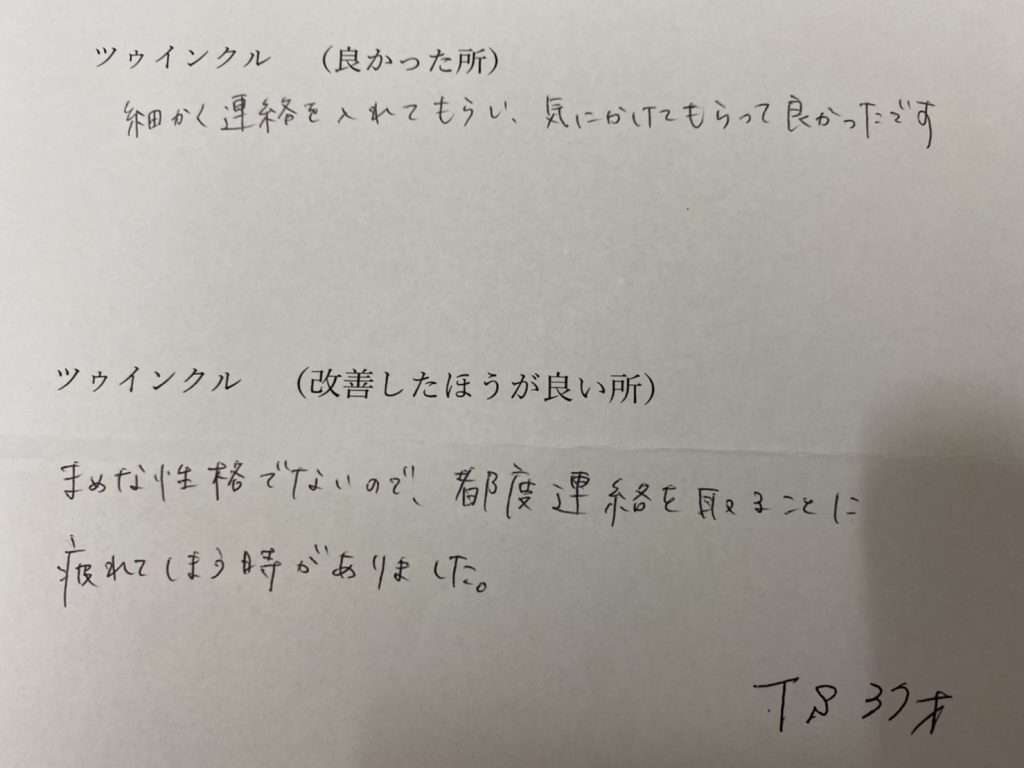 ツゥインクル （良かった所）
細かく連絡を入れてもらい、気にかけてもらって良かったです
ツゥインクル （改善したほうが良い所）
まめな性格でないので、都度連絡を取ることに
疲れてしまう時がありました。
T.S 37才